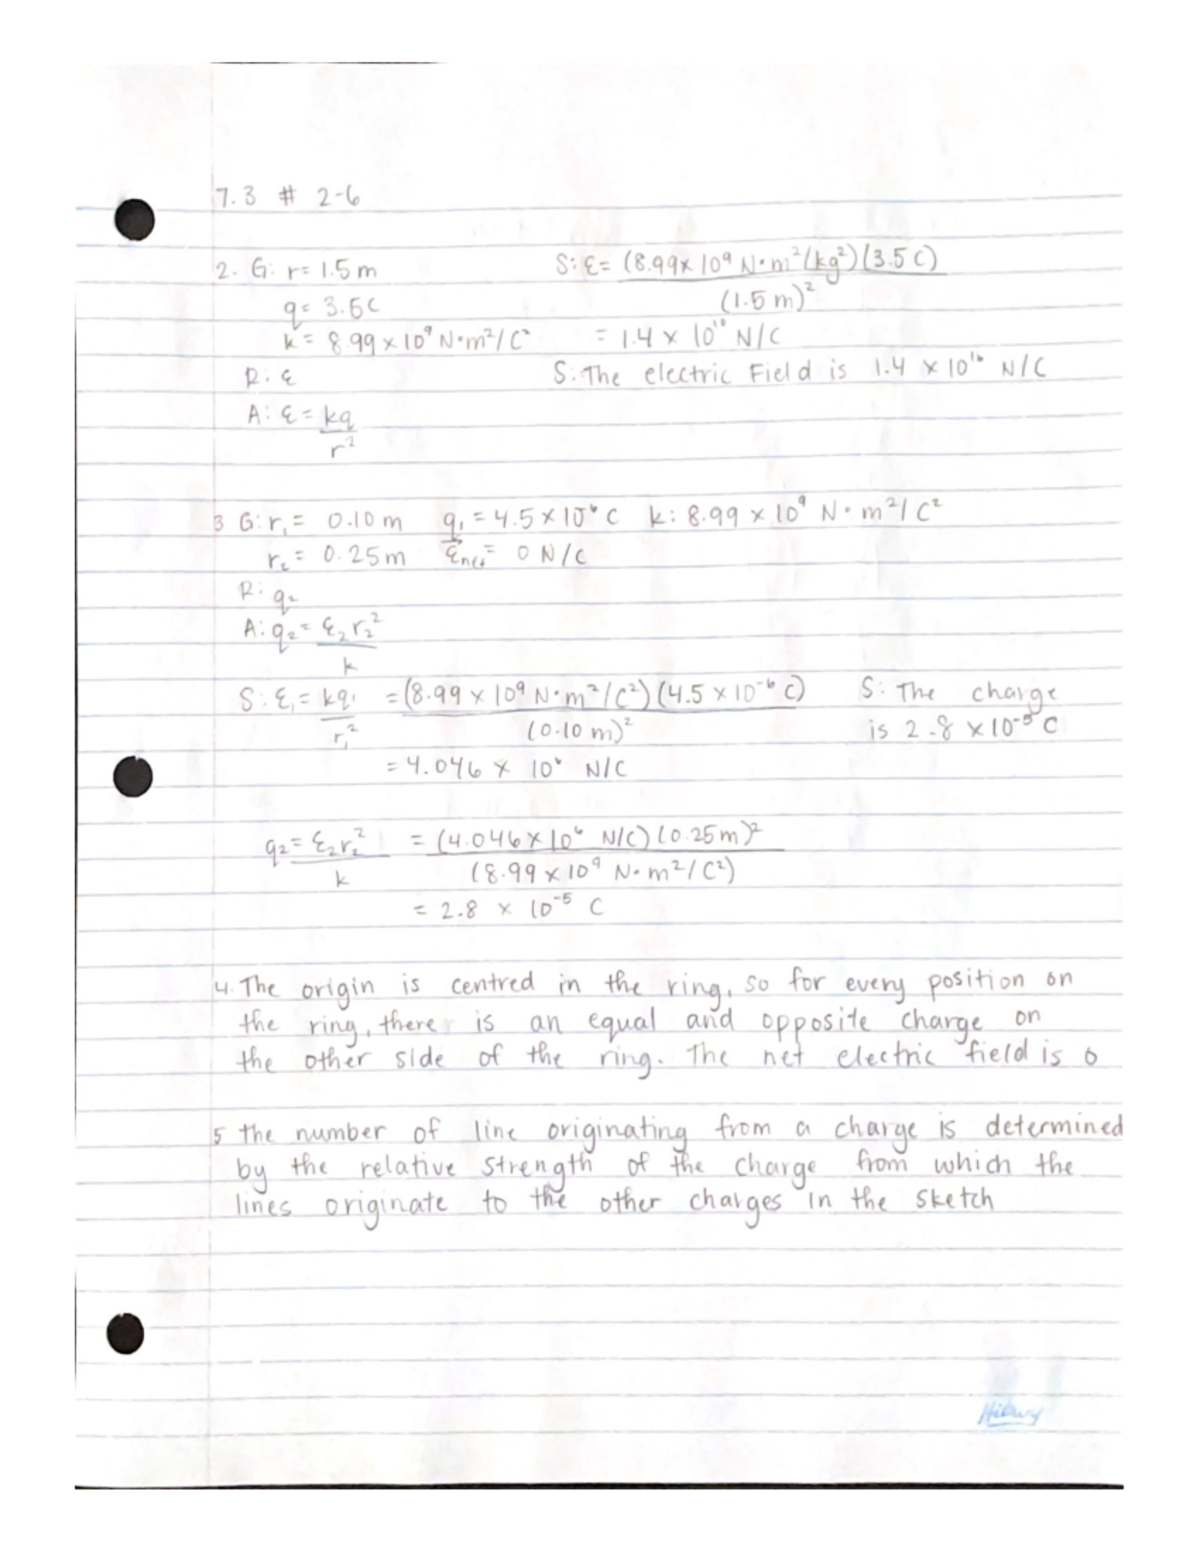 7.3 # 2-6
2. G: r= 1.5 m
q= 3.5C
k= 8.99 × 10⁹ N•m²/C²
R: ε
A: ε = kq
r²
S: ε= (8.99× 10⁹ N•m²/kg²)(3.5 C)
(1.5 m)²
= 1.4 × 10¹⁰ N/C
S: The electric Field is 1.4 × 10¹⁰ N/C
3 G: r₁ = 0.10 m q₁ = 4.5 × 10⁻⁶ C k: 8.99 × 10⁹ N• m²/ C²
r₂ = 0.25m ε⃗net = 0 N/C
R: q₂
A: q₂ = ε₂ r₂²
k
S: ε₁ = kq₁ = (8.99 × 10⁹ N•m²/C²)(4.5 × 10⁻⁶ C)
r₁² (0.10 m)²
= 4.046 × 10⁶ N/C
S: The charge
is 2.8 ×10⁻⁵ C
q₂ = ε₂r₂² = (4.046 × 10⁶ N/C)(0.25m)²
k (8.99 × 10⁹ N•m²/C²)
= 2.8 × 10⁻⁵ C
4. The origin is centred in the ring, so for every position on
the ring, there is an equal and opposite charge on
the other side of the ring. The net electric field is 0
5 the number of line originating from a charge is determined
by the relative strength of the charge from which the
lines originate to the other charges in the sketch